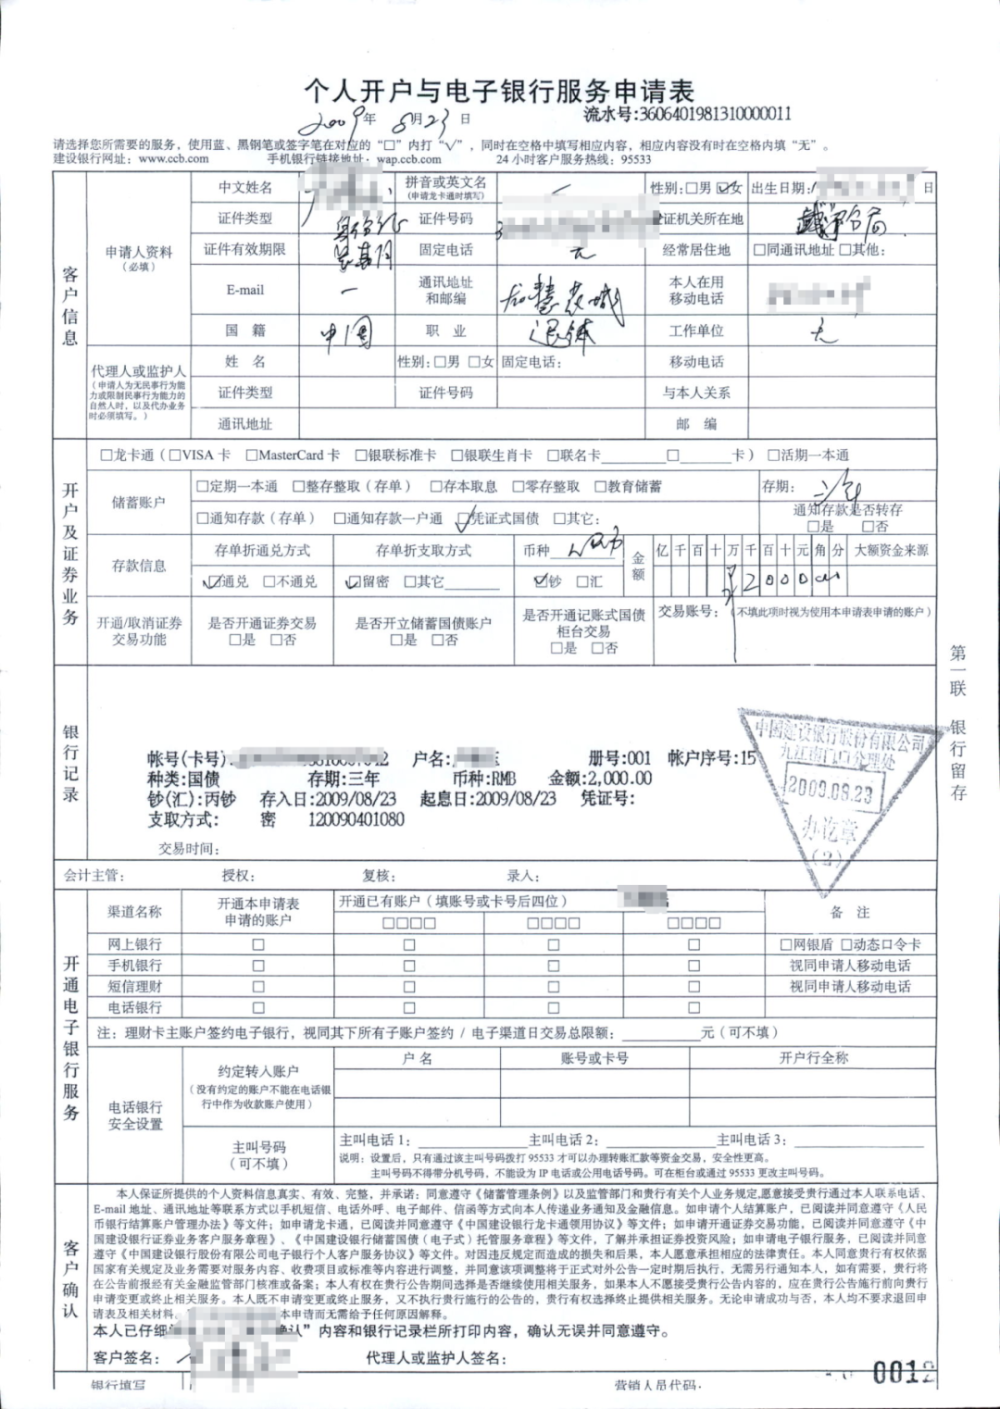 个人开户与电子银行服务申请表
2009年 8月23日 流水号:3606401981310000011
请选择您所需要的服务，使用蓝、黑钢笔或签字笔在对应的“□”内打“√”，同时在空格中填写相应内容，相应内容没有时在空格内填“无”。
建设银行网址：www.ccb.com 手机银行链接地址：wap.ccb.com 24小时客户服务热线：95533
客户信息
申请人资料（必填）
中文姓名 拼音或英文名（申请龙卡通时填写） 性别：□男 ☑女 出生日期： 日
证件类型 身份证 证件号码 证机关所在地 分局
证件有效期限 长期 固定电话 无 经常居住地 □同通讯地址 □其他：
E-mail 通讯地址和邮编 本人在用移动电话
国籍 中国 职业 退休 工作单位 无
代理人或监护人
（申请人为无民事行为能力或限制民事行为能力的自然人时，以及代办业务时必须填写。）
姓名 性别：□男 □女 固定电话： 移动电话
证件类型 证件号码 与本人关系
通讯地址 邮编
开户及证券业务
□龙卡通（□VISA卡 □MasterCard卡 □银联标准卡 □银联生肖卡 □联名卡 □ 卡） □活期一本通
储蓄账户
□定期一本通 □整存整取（存单） □存本取息 □零存整取 □教育储蓄 存期： 三年
□通知存款（存单） □通知存款一户通 ☑凭证式国债 □其它： 通知存款是否转存 □是 □否
存款信息
存单折通兑方式 存单折支取方式 币种 人民币 金额 亿千百十万千百十元角分 大额资金来源
☑通兑 □不通兑 ☑留密 □其它 ☑钞 □汇 ¥200000
开通/取消证券交易功能
是否开通证券交易 □是 □否
是否开立储蓄国债账户 □是 □否
是否开通记账式国债柜台交易 □是 □否
交易账号：（不填此项时视为使用本申请表申请的账户）
第一联 银行留存
银行记录
帐号(卡号): 户名: 册号:001 帐户序号:15
种类:国债 存期:三年 币种:RMB 金额:2,000.00
钞(汇):丙钞 存入日:2009/08/23 起息日:2009/08/23 凭证号:
支取方式: 密 120090401080
交易时间：
中国建设银行股份有限公司
九江南门口分理处
2009.08.23
办讫章
(3)
会计主管： 授权： 复核： 录入：
开通电子银行服务
渠道名称 开通本申请表申请的账户 开通已有账户（填账号或卡号后四位） 备注
□□□□ □□□□ □□□□
网上银行 □ □ □ □ □网银盾 □动态口令卡
手机银行 □ □ □ □ 视同申请人移动电话
短信理财 □ □ □ □ 视同申请人移动电话
电话银行 □ □ □ □
注：理财卡主账户签约电子银行，视同其下所有子账户签约 / 电子渠道日交易总限额： 元（可不填）
电话银行安全设置
约定转入账户（没有约定的账户不能在电话银行中作为收款账户使用）
户名 账号或卡号 开户行全称
主叫号码（可不填）
主叫电话1： 主叫电话2： 主叫电话3：
说明：设置后，只有通过该主叫号码拨打95533才可以办理转账汇款等资金交易，安全性更高。
主叫号码不得带分机号码，不能设为IP电话或公用电话号码。可在柜台或通过95533更改主叫号码。
客户确认
本人保证所提供的个人资料信息真实、有效、完整，并承诺：同意遵守《储蓄管理条例》以及监管部门和贵行有关个人业务规定，愿意接受贵行通过本人联系电话、
E-mail地址、通讯地址等联系方式以手机短信、电话外呼、电子邮件、信函等方式向本人传递业务通知及金融信息。如申请个人结算账户，已阅读并同意遵守《人民
币银行结算账户管理办法》等文件；如申请龙卡通，已阅读并同意遵守《中国建设银行龙卡通领用协议》等文件；如申请开通证券交易功能，已阅读并同意遵守《中
国建设银行证券业务客户服务章程》、《中国建设银行储蓄国债（电子式）托管服务章程》等文件，了解并承担证券投资风险；如申请电子银行服务，已阅读并同意
遵守《中国建设银行股份有限公司电子银行个人客户服务协议》等文件。对因违反规定而造成的损失和后果，本人愿意承担相应的法律责任。本人同意贵行有权依据
国家有关规定及业务需要对服务内容、收费项目或标准等内容进行调整，并同意该项调整将于正式对外公告一定时期后执行，无需另行通知本人，如有需要，贵行将
在公告前报经有关金融监管部门核准或备案；本人有权在贵行公告期间选择是否继续使用相关服务，如果本人不愿接受贵行公告内容的，应在贵行公告施行前向贵行
申请变更或终止相关服务。本人既不申请变更或终止服务，又不执行贵行施行的公告的，贵行有权选择终止提供相关服务。无论申请成功与否，本人均不要求退回申
请表及相关材料。 本申请而无需给予任何原因解释。
本人已仔细 确认”内容和银行记录栏所打印内容，确认无误并同意遵守。
客户签名： 代理人或监护人签名：
0012
银行填写 营销人员代码：